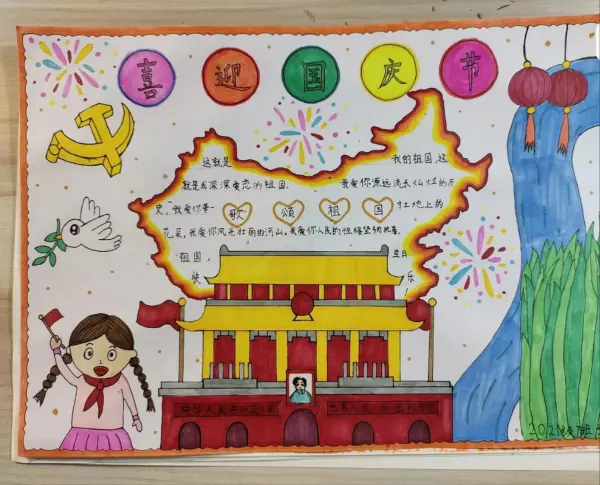 喜迎国庆节
这就是 我的祖国,这
就是我深深爱恋的祖国. 我爱你源远流长灿烂的历
史,我爱你每一 歌颂祖国 土地上的
花朵,我爱你风光壮丽的河山,我爱你人民的性格坚韧
祖国, 生日
快 乐
中华人民共和国万岁 世界人民
202 班